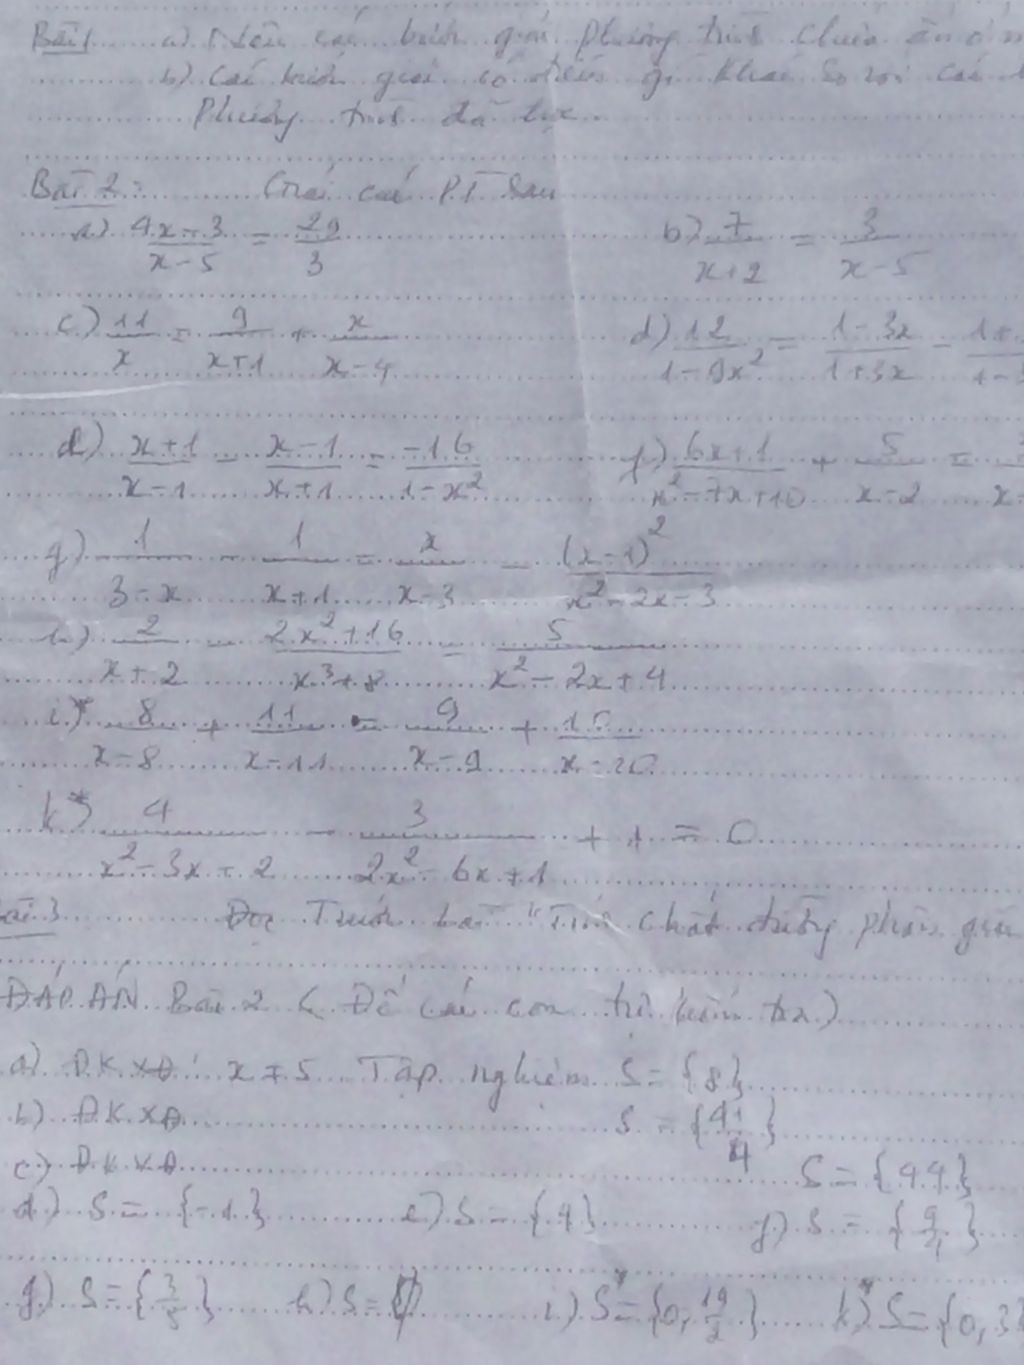 Bài 1 a) Nêu các bước giải phương trình chứa ẩn ở m
b) Các bước giải có điểm gì khác so với các
Phương trình đã học
Bài 2: Giải các PT sau
a) \frac{4x-3}{x-5} = \frac{29}{3} b) \frac{7}{x+2} = \frac{3}{x-5}
c) \frac{11}{x} = \frac{9}{x+1} + \frac{x}{x-4} d) \frac{12}{1-9x^2} = \frac{1-3x}{1+3x} - \frac{1+}{1-3}
e) \frac{x+1}{x-1} - \frac{x-1}{x+1} = \frac{-16}{1-x^2} f) \frac{6x+1}{x^2-7x+10} + \frac{5}{x-2} =
g) \frac{1}{3-x} - \frac{1}{x+1} = \frac{x}{x-3} - \frac{(x-1)^2}{x^2-2x-3}
h) \frac{2}{x+2} - \frac{2x^2+16}{x^3+8} = \frac{5}{x^2-2x+4}
i)* \frac{8}{x-8} + \frac{11}{x-11} = \frac{9}{x-9} + \frac{10}{x-20}
k)* \frac{4}{x^2-3x-2} - \frac{3}{2x^2-6x+1} + 1 = 0
Bài 3 Đọc Trước bài "Tính chất đường phân giác
ĐÁP ÁN Bài 2 ( Để các con tự kiểm tra)
a) ĐKXĐ: x ≠ 5 Tập nghiệm S = {8}
b) ĐKXĐ S = {\frac{41}{4}}
c) ĐKXĐ S = {44}
d) S = {-1} e) S = {4} f) S = {\frac{9}{4}}
g) S = {\frac{3}{5}} h) S = ∅ i)* S = {0, \frac{19}{2}} k)* S = {0, 3}